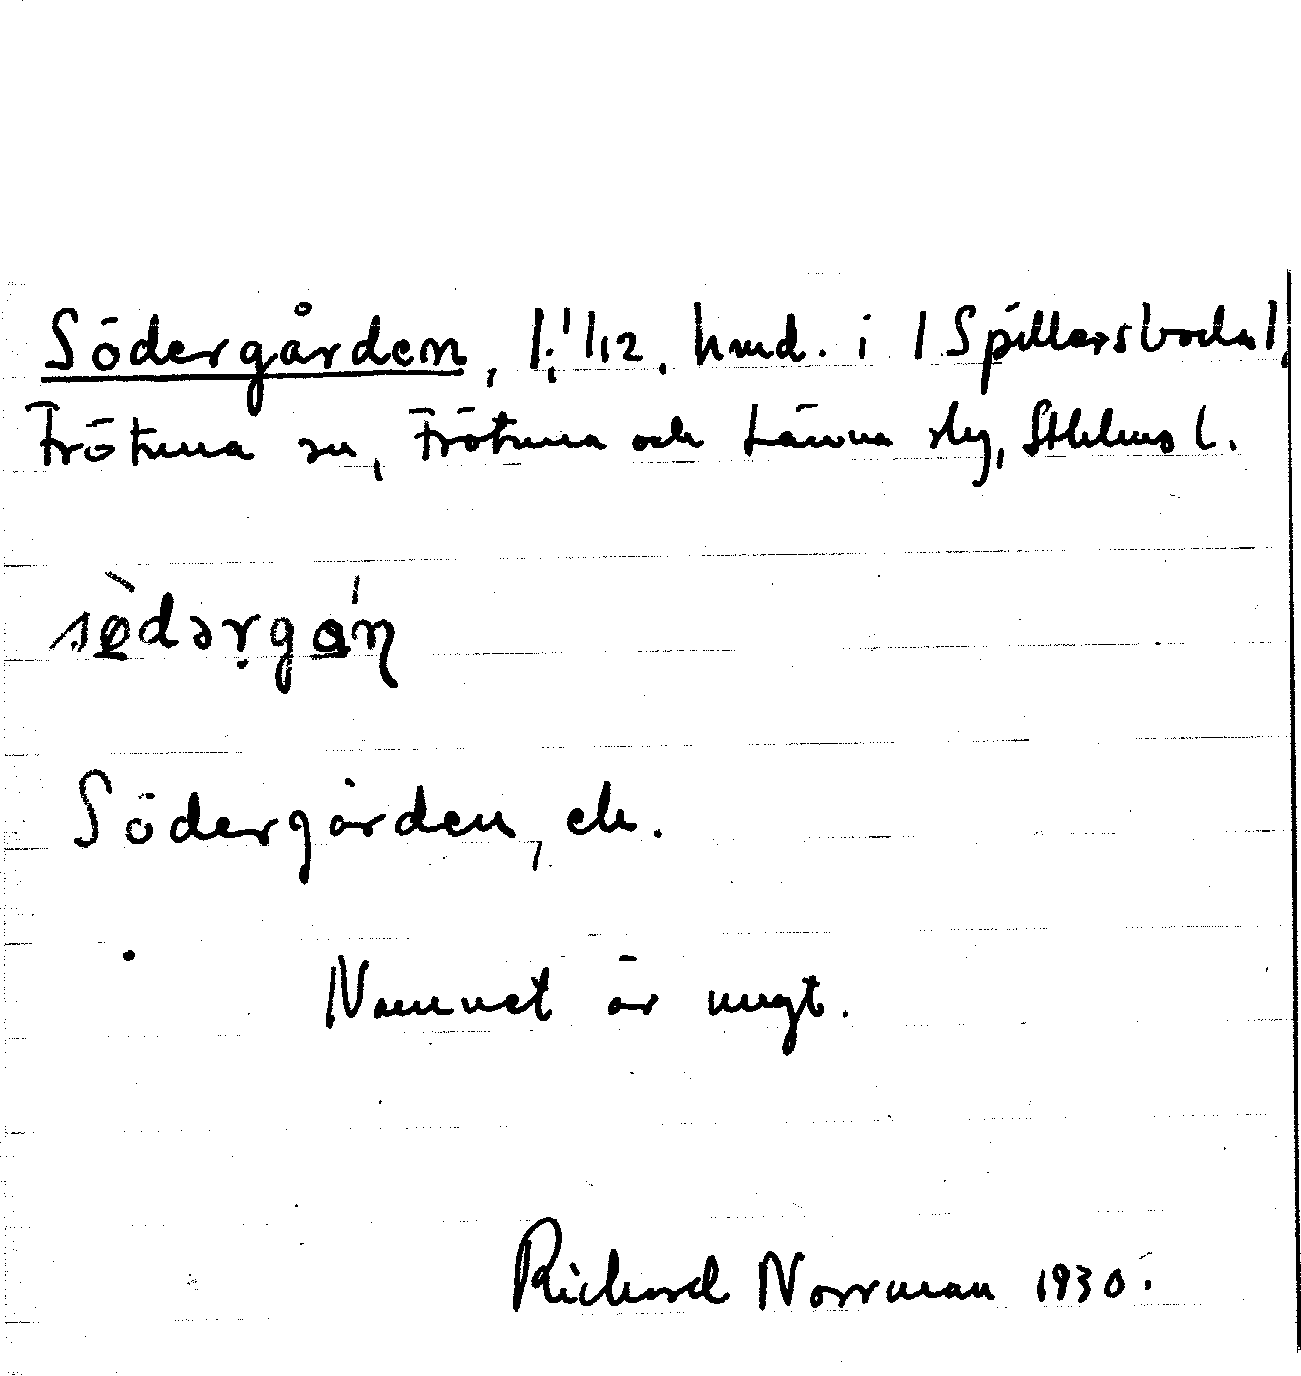 Södergården, /:1/12. hmd. i /Spillersboda/,
Frötuna sn, Frötuna och Länna skg, Sthlms l.
sø̀dərgán
Södergården, ek.
Namnet är ungt.
Richard Norrman 1930.